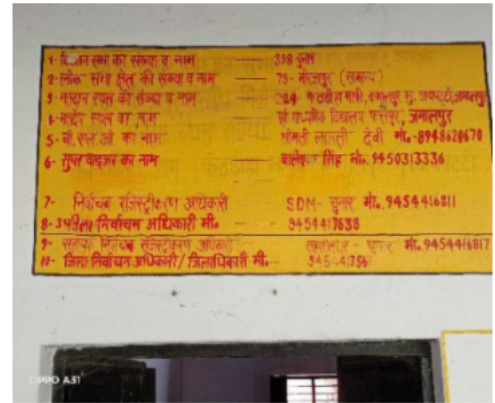 1- विधान सभा का संख्या व नाम 398 चुनार
2- लोक सभा क्षेत्र की संख्या व नाम — 79- मीरजापुर (सामान्य)
3- मतदान स्थल की संख्या व नाम — 324-
4- मतदेय स्थल का नाम पूर्व माध्यमिक विद्यालय जमालपुर
5- बी.एल.ओ का नाम श्रीमती लालती देवी मो.-8948620670
6- सुपर वाइजर का नाम सिंह मो. 9450313336
7- निर्वाचक रजिस्ट्रीकरण अधिकारी SDM- चुनार मो. 9454416811
8- उपजिला निर्वाचन अधिकारी मो. - 9454417638
9- सहायक निर्वाचक रजिस्ट्रीकरण अधिकारी तहसीलदार - चुनार मो. 9454416817
10- जिला निर्वाचन अधिकारी/जिलाधिकारी मो.-
OPPO A31